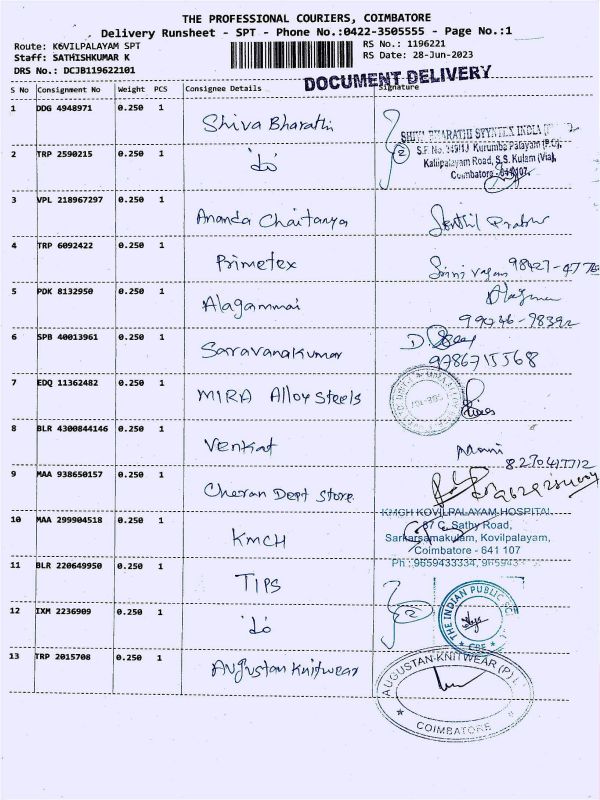 THE PROFESSIONAL COURIERS, COIMBATORE
Delivery Runsheet - SPT - Phone No.:0422-3505555 - Page No.:1
Route: KOVILPALAYAM SPT
RS No.: 1196221
Staff: SATHISHKUMAR K
RS Date: 28-Jun-2023
DRS No.: DCJB119622101
DOCUMENT DELIVERY
S No Consignment No Weight PCS Consignee Details Signature
1 DDG 4948971 0.250 1 Shiva Bharathi
SHIVA BHARATHI SYNTEX INDIA
Kurumba Palayam (P.O),
Kalipalayam Road, S.S. Kulam (Via),
Coimbatore - 641107.
2 TRP 2590215 0.250 1 "do" 2
3 VPL 218967297 0.250 1 Ananda Chaitanya Senthil Prabhu
4 TRP 6092422 0.250 1 Primetex
5 PDK 8132950 0.250 1 Alagammai Alagmai
99046-98392
6 SPB 40013961 0.250 1 Saravanakumar
9786715568
7 EDQ 11362482 0.250 1 MIRA Alloy Steels
8 BLR 4300844146 0.250 1 Venkat Mani
9 MAA 938650157 0.250 1 Cheran Dept Store
10 MAA 299904518 0.250 1 KMCH
KMCH KOVILPALAYAM HOSPITAL
67 C, Sathy Road,
Sarkarsamakulam, Kovilpalayam,
Coimbatore - 641 107
Ph : 9659433334,
11 BLR 220649950 0.250 1 TIPS
12 IXM 2236909 0.250 1 "do" 2
THE INDIAN PUBLIC SC
CBE
13 TRP 2015708 0.250 1 Augustan Knitwear
AUGUSTAN KNITWEAR (P) L
COIMBATORE